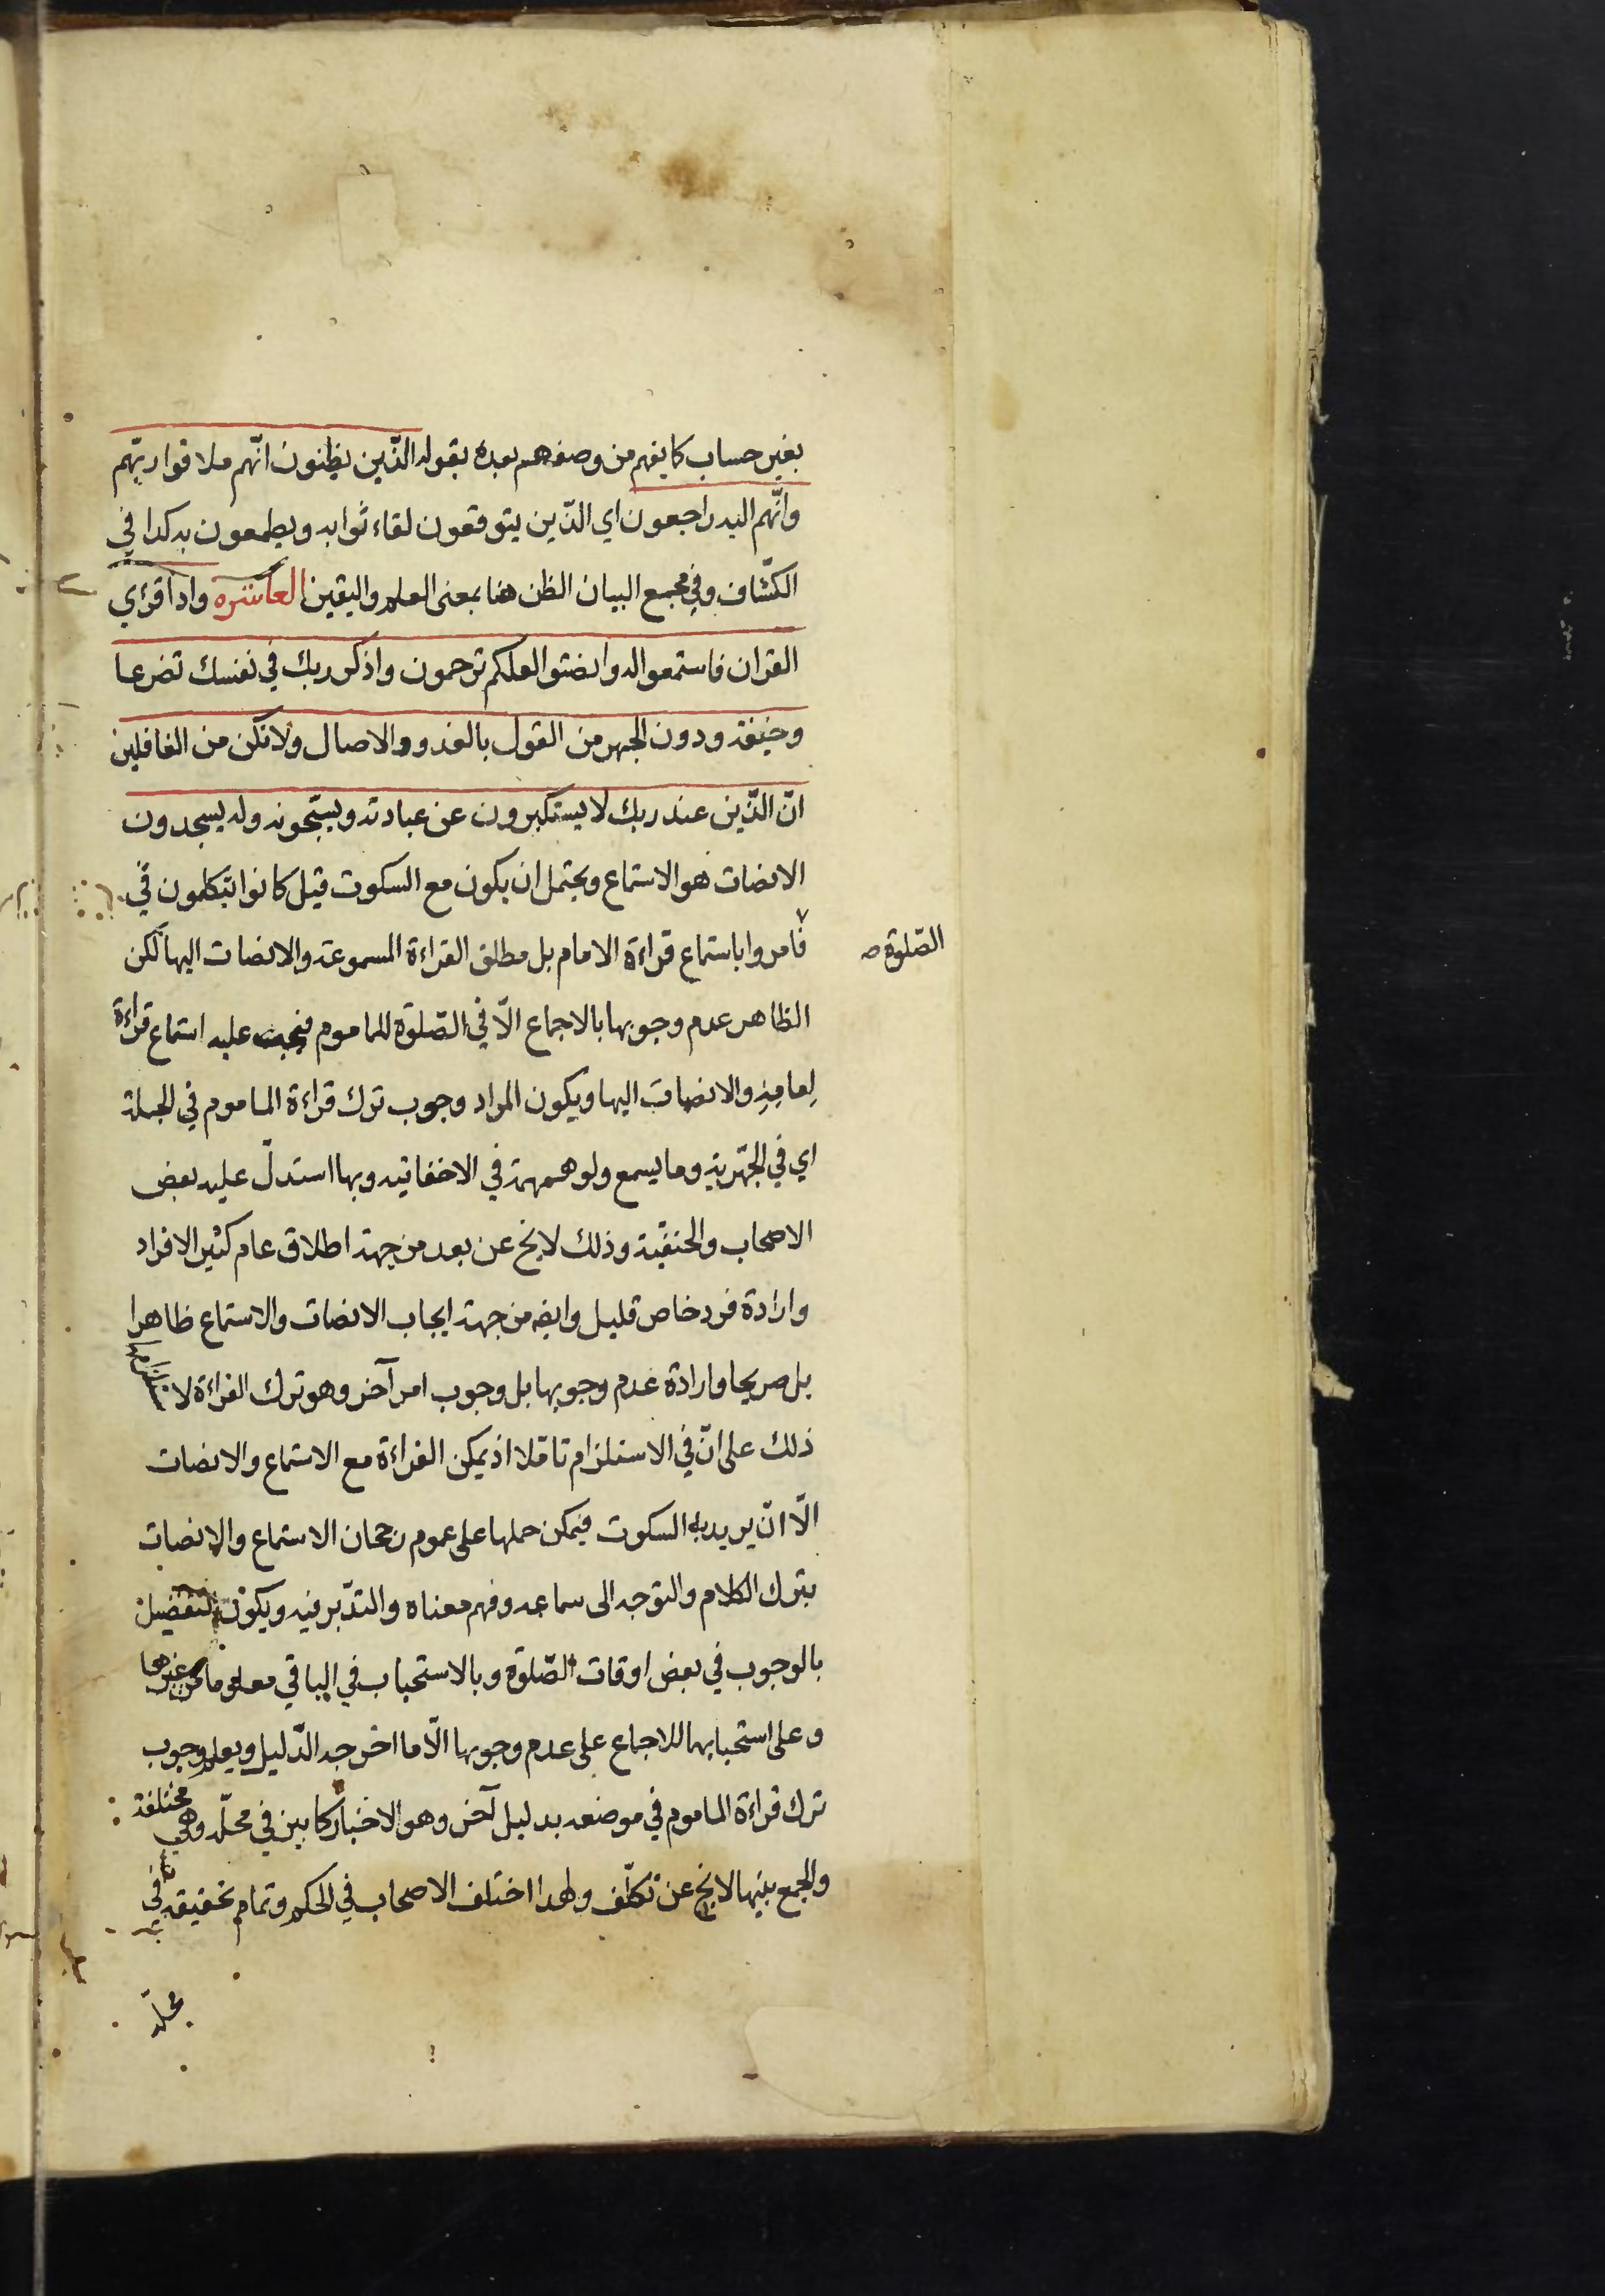 بغير حساب كما يفهم من وصفهم بعده بقوله الّذين يظنون انّهم ملاقوا ربّهم
وانّهم اليه راجعون اي الّذين يتوقعون لقاء ثوابه ويطمعون به كذا في
الكشّاف وفي مجمع البيان الظن هنا بمعنى العلم واليقين العاشره واذا قرئ
القران فاستمعوا له وانصتوا لعلكم ترحمون واذكر ربك في نفسك تضرعا
وخيفة ودون الجهر من القول بالغدو والاصال ولا تكن من الغافلين
انّ الّذين عند ربك لا يستكبرون عن عبادته ويسبّحونه وله يسجدون
الانصات هو الاستماع ويحتمل ان يكون مع السكوت قيل كانوا يتكلمون في
الصّلوة صح
فامروا باستماع قراءة الامام بل مطلق القراءة المسموعة والانصات اليها لكن
الظاهر عدم وجوبها بالاجماع الّا في الصّلوة للماموم فيجب عليه استماع قراءة
امامه والانصات اليها ويكون المراد وجوب ترك قراءة الماموم في الجملة
اي في الجهرية وما يسمع ولو همهمة في الاخفاتيه وبها استدلّ عليه بعض
الاصحاب والحنفية وذلك لا يخ عن بعد من جهة اطلاق عام كثير الافراد
وارادة فرد خاص قليل وايضه من جهة ايجاب الانصات والاستماع ظاهرا
بل صريحا وارادة عدم وجوبها بل وجوب امر آخر وهو ترك القراءة لاستلزامها
ذلك على انّ في الاستلزام تاملا اذ يمكن القراءة مع الاستماع والانصات
الّا ان يريد به السكوت فيمكن حملها على عموم رجحان الاستماع والانصات
بترك الكلام والتوجه الى سماعه وفهم معناه والتدّبر فيه ويكون التفضيل
بالوجوب في بعض اوقات الصّلوة وبالاستحباب في الباقي معلوما من غيرها
وعلى استحبابها للاجماع على عدم وجوبها الّا ما اخرجه الدّليل ويعلم وجوب
ترك قراءة الماموم في موضعه بدليل آخر وهو الاخبار كما بين في محلّه وهي مختلفة
والجمع بينها لا يخ عن تكلّف ولهذا اختلف الاصحاب في الحكم وتمام تحقيقه في
محلّه